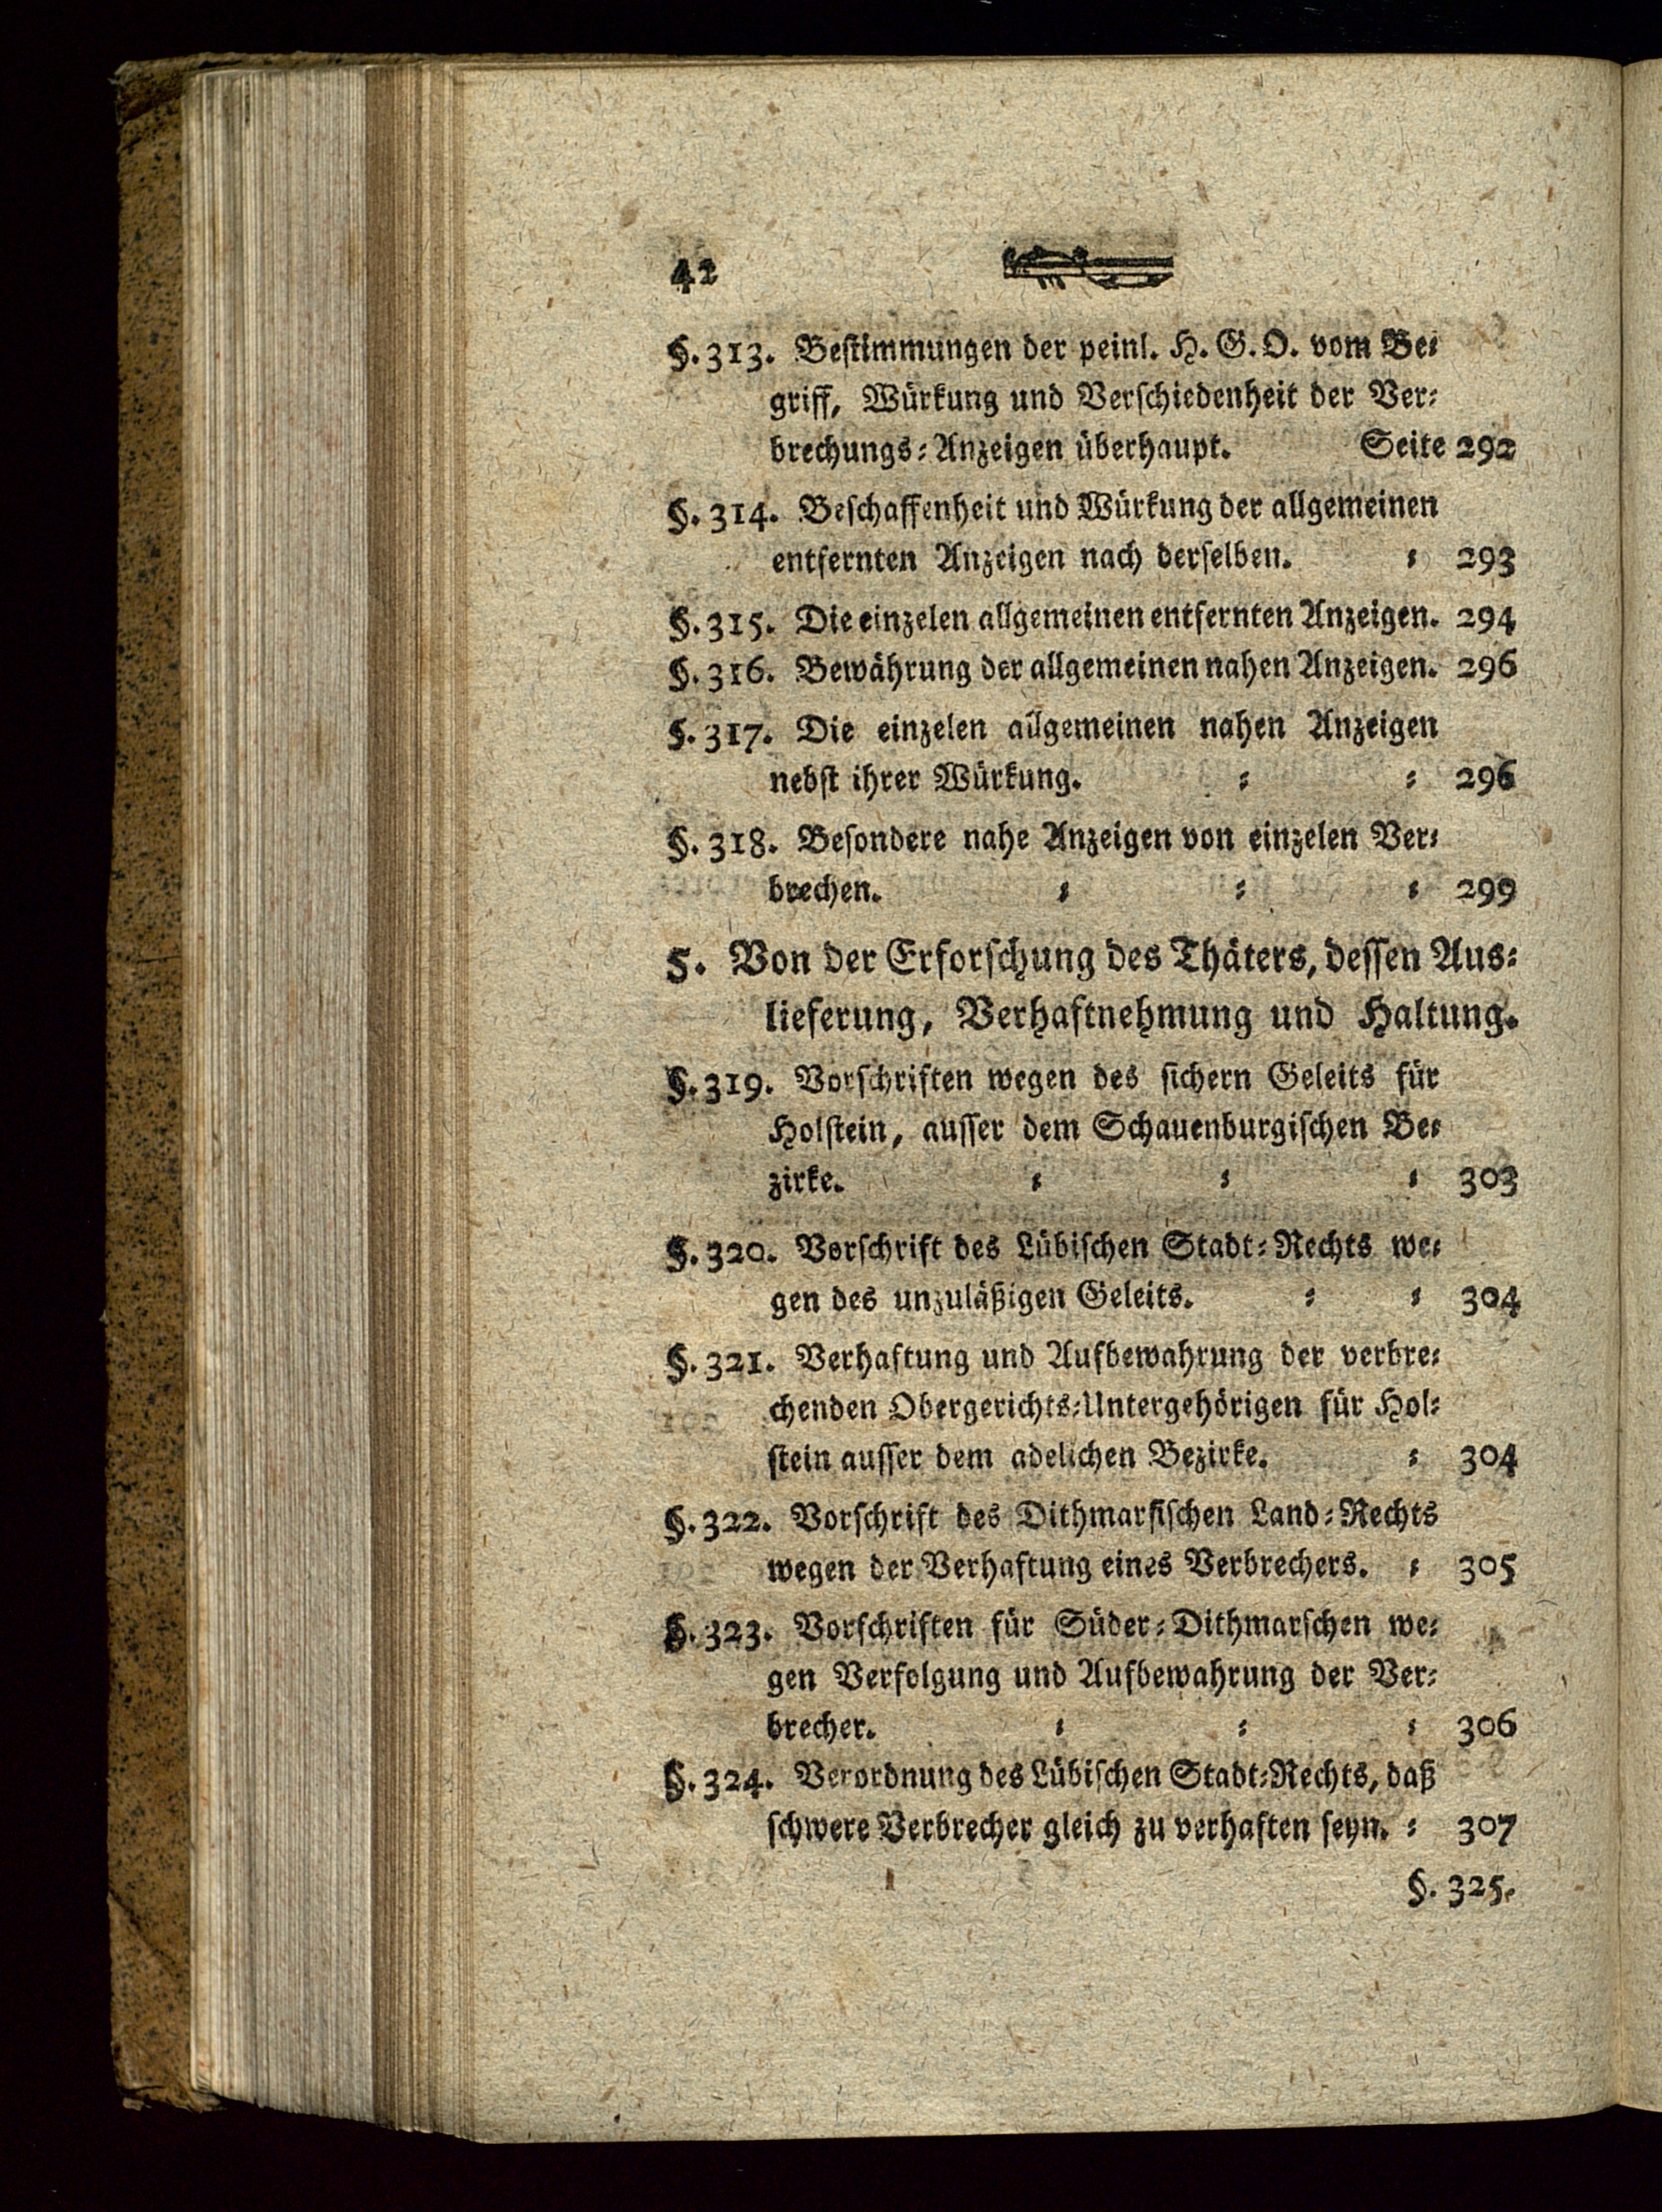 42
§. 313. Beſtimmungen der peinl. H. G. O. vom Be⸗
griff, Würkung und Verſchiedenheit der Ver⸗
brechungs⸗Anzeigen überhaupt. Seite 292
§. 314. Beſchaffenheit und Würkung der allgemeinen
entfernten Anzeigen nach derſelben. ⸗ 293
§. 315. Die einzelen allgemeinen entfernten Anzeigen. 294
§. 316. Bewährung der allgemeinen nahen Anzeigen. 296
§. 317. Die einzelen allgemeinen nahen Anzeigen
nebſt ihrer Würkung. ⸗ ⸗ 296
§. 318. Beſondere nahe Anzeigen von einzelen Ver⸗
brechen. ⸗ ⸗ ⸗ 299
5. Von der Erforſchung des Thäters, deſſen Aus⸗
lieferung, Verhaftnehmung und Haltung.
§. 319. Vorſchriften wegen des ſichern Geleits für
Holſtein, auſſer dem Schauenburgiſchen Be⸗
zirke. ⸗ ⸗ ⸗ 303
§. 320. Vorſchrift des Lübiſchen Stadt⸗Rechts we⸗
gen des unzuläßigen Geleits. ⸗ ⸗ 304
§. 321. Verhaftung und Aufbewahrung der verbre⸗
chenden Obergerichts⸗Untergehörigen für Hol⸗
ſtein auſſer dem adelichen Bezirke. ⸗ 304
§. 322. Vorſchrift des Dithmarſiſchen Land⸗Rechts
wegen der Verhaftung eines Verbrechers. ⸗ 305
§. 323. Vorſchriften für Süder⸗Dithmarſchen we⸗
gen Verfolgung und Aufbewahrung der Ver⸗
brecher. ⸗ ⸗ ⸗ 306
§. 324. Verordnung des Lübiſchen Stadt⸗Rechts, daß
ſchwere Verbrecher gleich zu verhaften ſeyn. ⸗ 307
§. 325.